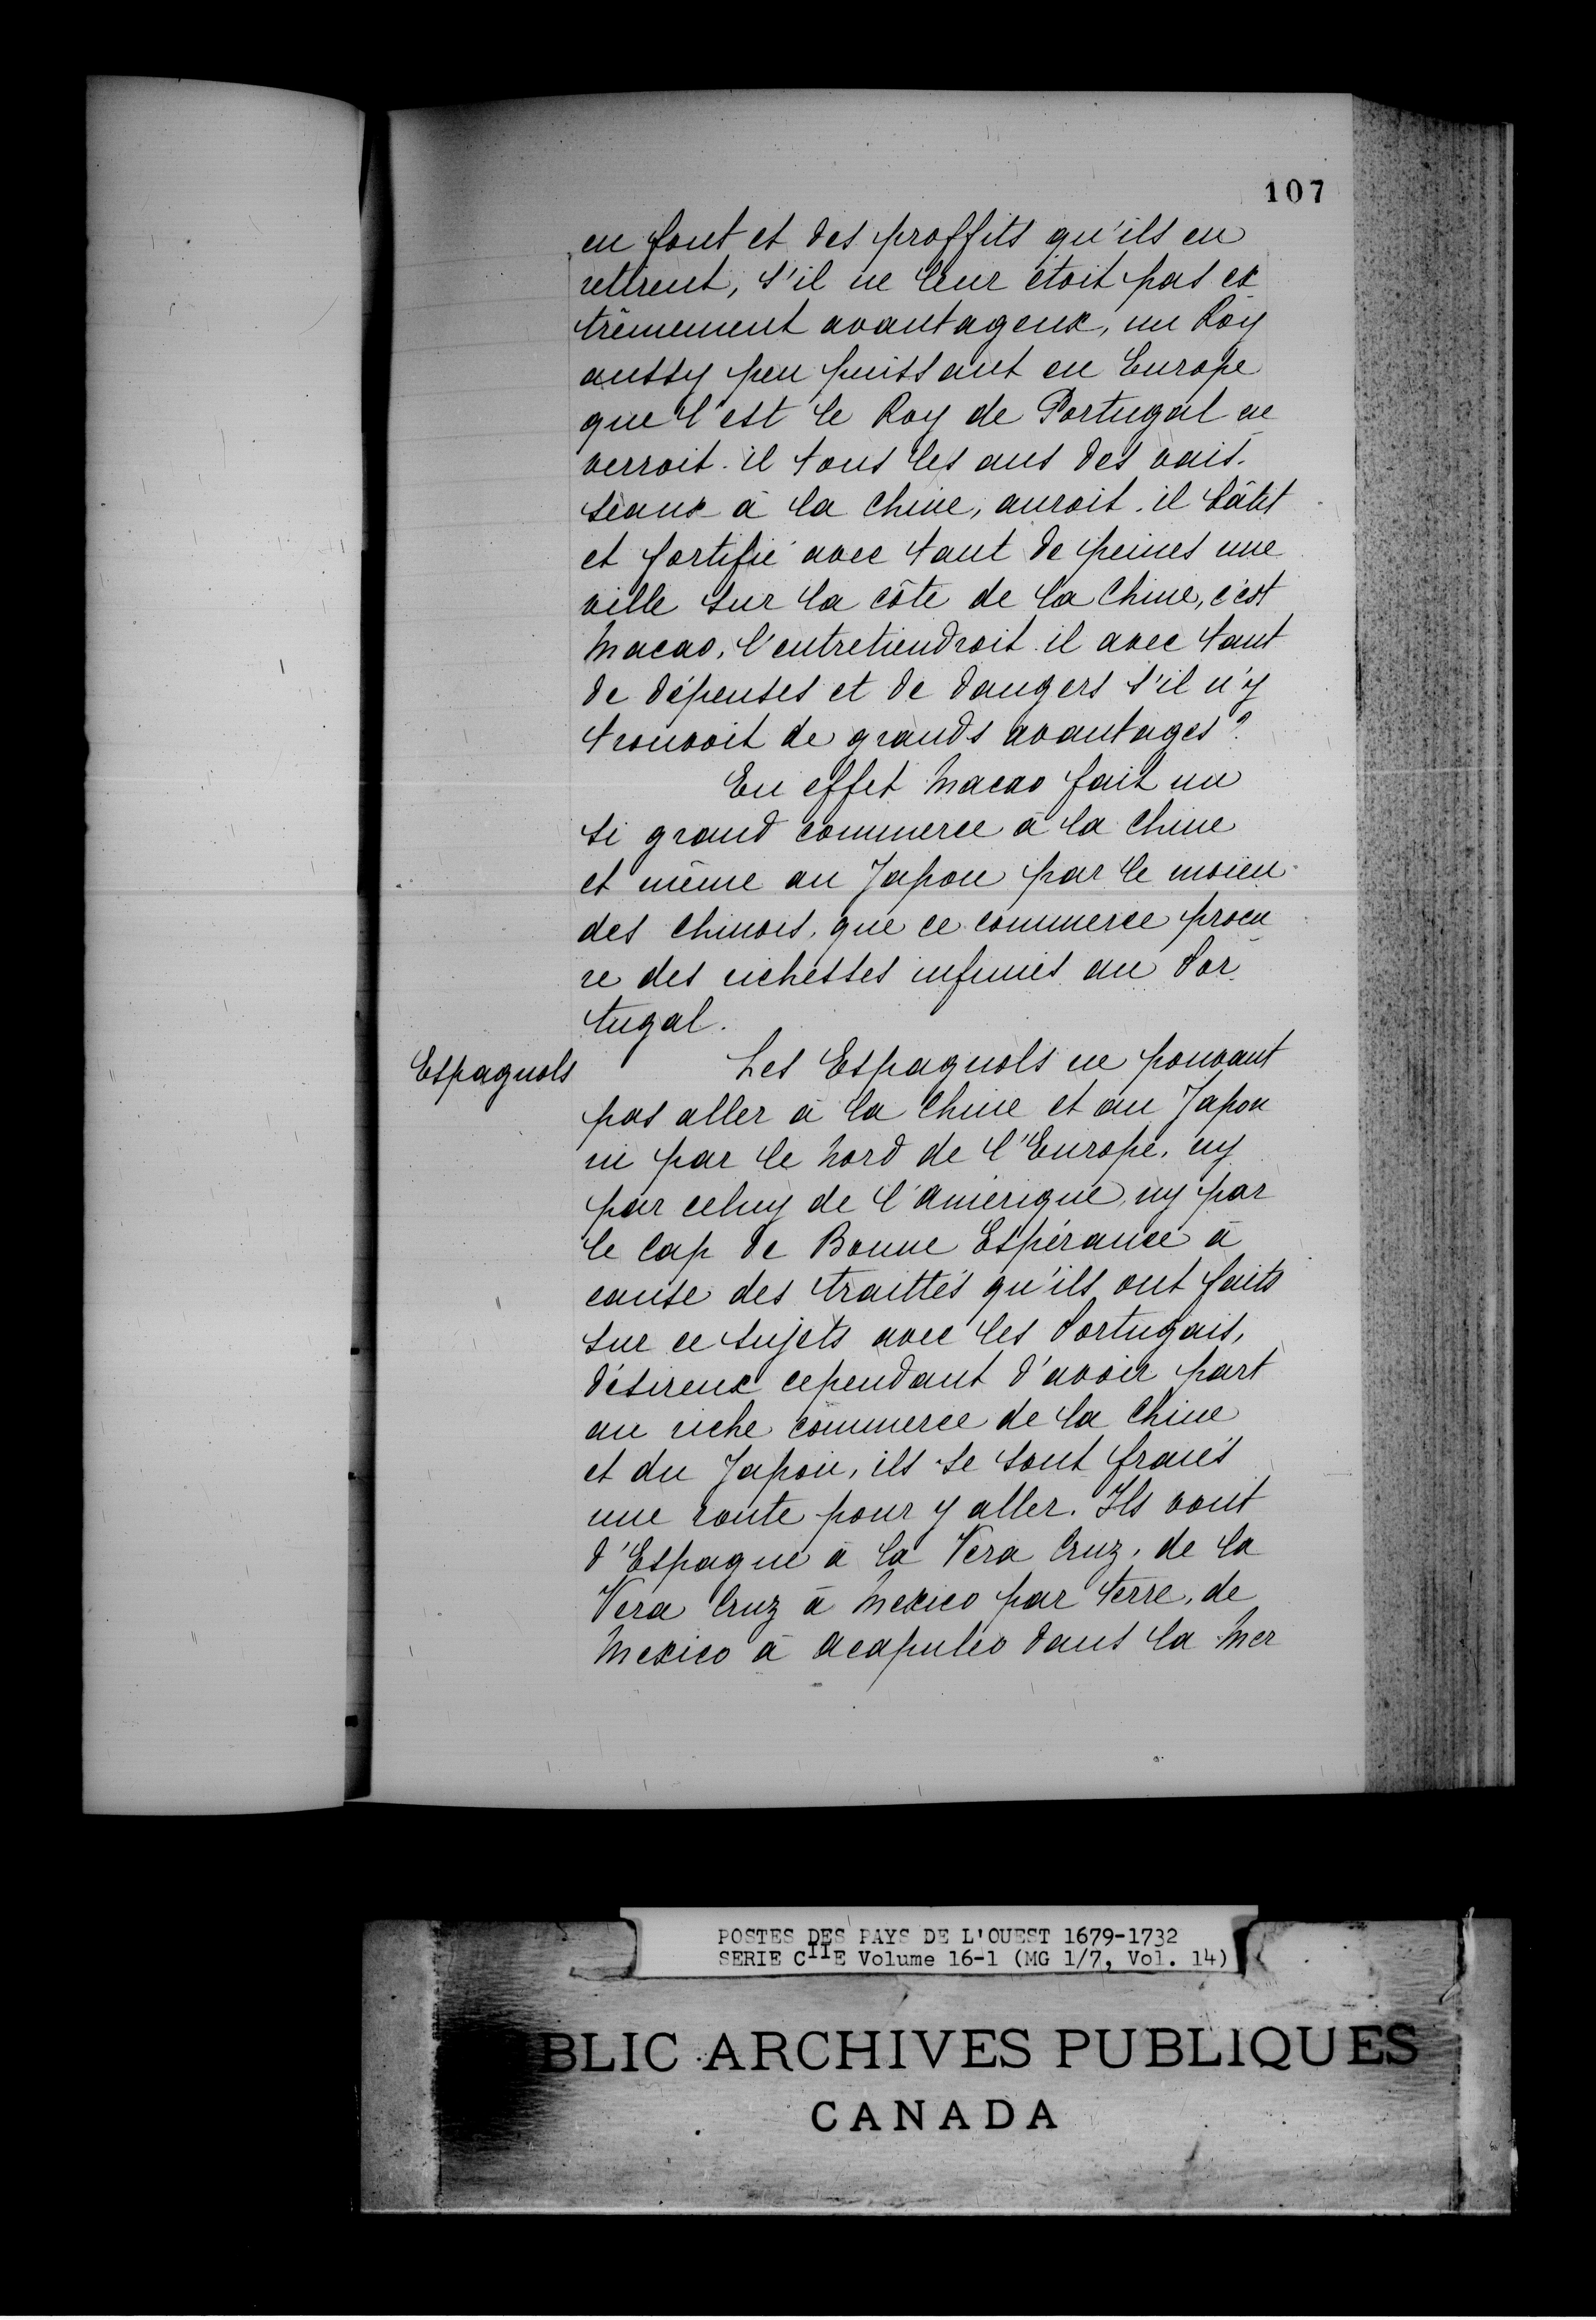 107
en font et des proffits qu'ils en
retirent, s'il ne leur étoit pas ex
trêmement avantageux, un Roy
aussy peu puissant en Europe
que l'est le Roy de Portugal en
verroit-il tous les ans des vais-
seaux à la Chine, auroit-il bâtit
et fortifié avec tant de peines une
ville sur la côte de la Chine, c'est
Macao, l'entretiendroit-il avec tant
de dépenses et de dangers s'il n'y
trouvoit de grands avantages?
En effet Macao fait un
si grand commerce à la Chine
et même au Japon par le moien
des Chinois, que ce commerce procu
re des richesses infinies au Por-
tugal.
Espagnols
Les Espagnols ne pouvant
pas aller à la Chine et au Japon
ni par le Nord de l'Europe, ny
par celuy de l'amérique, ny par
le Cap de Bonne Espérance à
cause des traittés qu'ils ont faits
sur ce sujets avec les Portugais,
désireux cependant d'avoir part
au riche commerce de la Chine
et du Japon, ils se sont fraiés
une route pour y aller. Ils vont
d'Espagne à la Vera Cruz, de la
Vera Cruz à Mexico par terre, de
Mexico à Acapulco dans la Mer
POSTES DES PAYS DE L'OUEST 1679-1732
SERIE CIIE Volume 16-1 (MG 1/7, Vol. 14)
BLIC ARCHIVES PUBLIQUES
CANADA